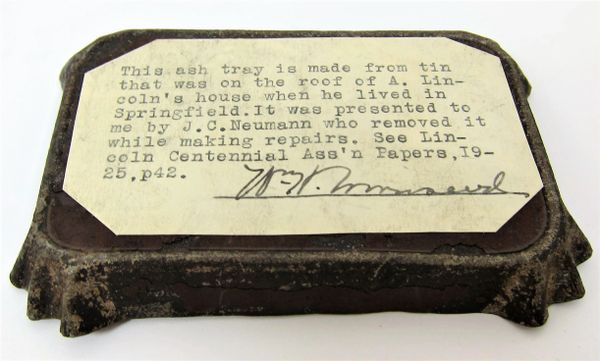 This ash tray is made from tin
that was on the roof of A. Lin-
coln's house when he lived in
Springfield.It was presented to
me by J.C.Neumann who removed it
while making repairs. See Lin-
coln Centennial Ass'n Papers,I9-
25,p42.
Wm W.